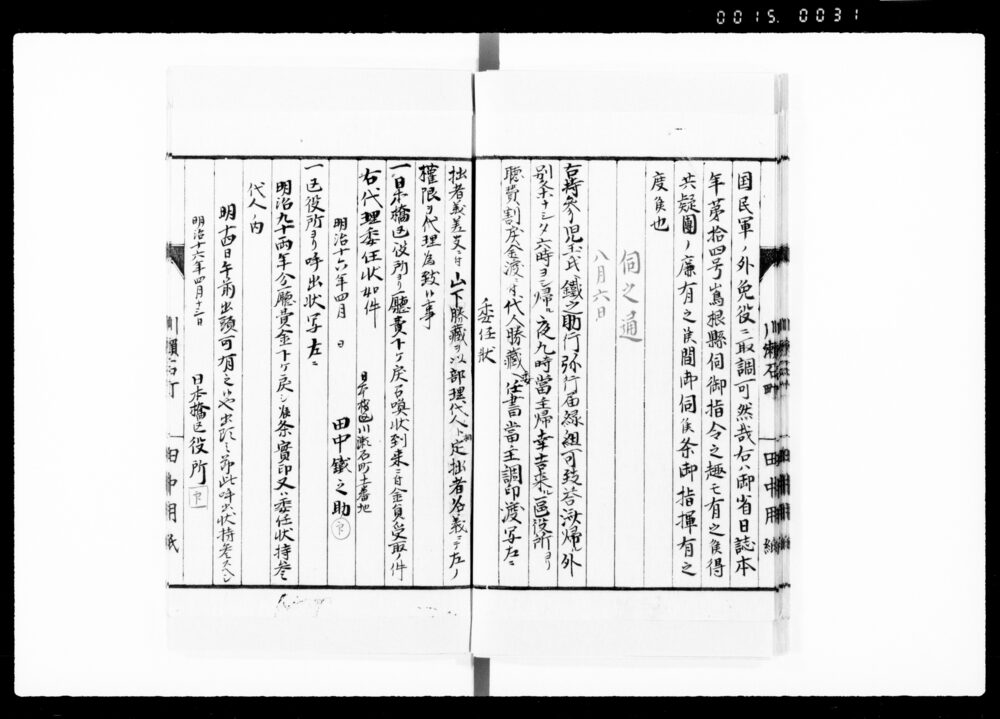 0015. 0031
国民軍ノ外免役ニ取調可然哉右ハ御省日誌本
年第拾四号嶌根縣伺御指令之趣モ有之候得
共疑團ノ廉有之候間御伺候条御指揮有之
度候也
伺之通
八月六日
右持参り児玉氏鐵之助行弥行届縁組可致答
六時ヨシ帰ル夜九時當主帰幸吉来ル区役所ヨリ
聴費割戻金渡ニ付代人勝藏ヘ委任書當主調印渡写左ニ
委任状
拙者義差支ニ付山下勝藏ヲ以部理代人ト定拙者名義ニテ左ノ
權限ヲ代理為致候事
一日本橋区役所ヨリ廳費下ケ戻召喚状到来ニ付金員受取ノ件
右代理委任状如件
日本橋区川瀬石町十一番地
明治十六年四月 日
田中鐵之助 印
一区役所ヨリ呼出状写左ニ
明治九十両年分廳費金下ケ戻シ候条實印又ハ委任状持参
代人ノ内
明十四日午前出頭可有之候也出頭之節此呼出状持参スヘシ
明治十六年四月十三日
日本橋区役所 印
川瀬石町
田中用紙
川瀬石町
田中用紙